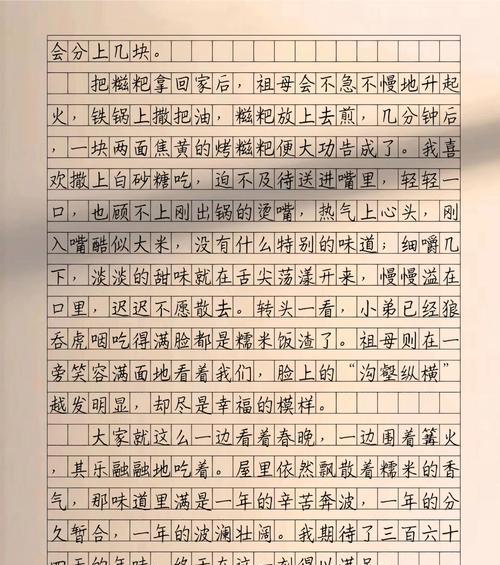 会分上几块。
把糍粑拿回家后，祖母会不急不慢地升起
火，铁锅上撒把油，糍粑放上去煎，几分钟后
，一块两面焦黄的烤糍粑便大功告成了。我喜
欢撒上白砂糖吃，迫不及待送进嘴里，轻轻一
口，也顾不上刚出锅的烫嘴，热气上心头，刚
入嘴酷似大米，没有什么特别的味道；细嚼几
下，淡淡的甜味就在舌尖荡漾开来，慢慢溢在
口里，迟迟不愿散去。转头一看，小弟已经狼
吞虎咽吃得满脸都是糯米饭渣了。祖母则在一
旁笑容满面地看着我们，脸上的“沟壑纵横”
越发明显，却尽是幸福的模样。
大家就这么一边看着春晚，一边围着篝火
，其乐融融地吃着。屋里依然飘散着糯米的香
气，那味道里满是一年的辛苦奔波，一年的分
久暂合，一年的波澜壮阔。我期待了三百六十
四天的年味，终于在这一刻得以满足